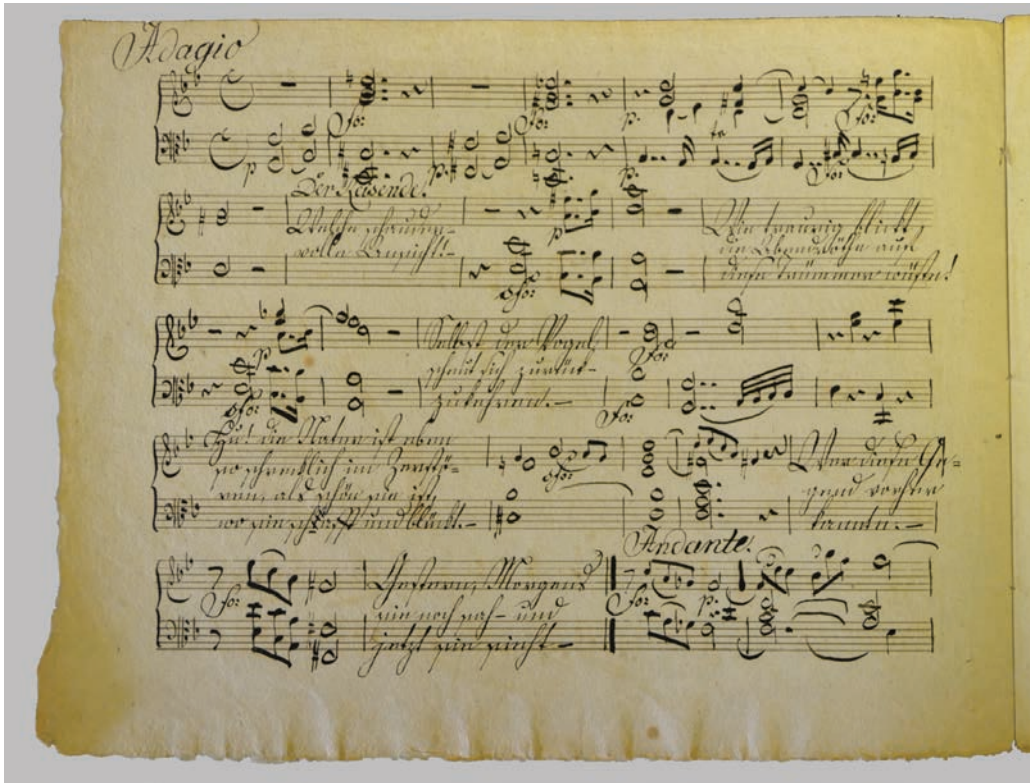 Adagio
for: for: p. for:
p p. p. tr for:
Der Reisende.
Welche schauder-
volle Ansicht! –
p
sfor:
Wie traurig blickt
die Abendröthe auf
diese Trümmer wüste!
p.
sfor:
Selbst der Vogel
scheut sich zurück-
zukehren. –
for:
for:
Hu! die Natur ist eben
so schrecklich im Zerstö-
ren, als schön sie ist,
wo sie schafft und blüht –
sfor:
Wer diese Ge-
gend vorher
kannte. –
for:
Gestern, Morgens
sie noch sah – und
jetzt sie sieht –
Andante.
for: p.